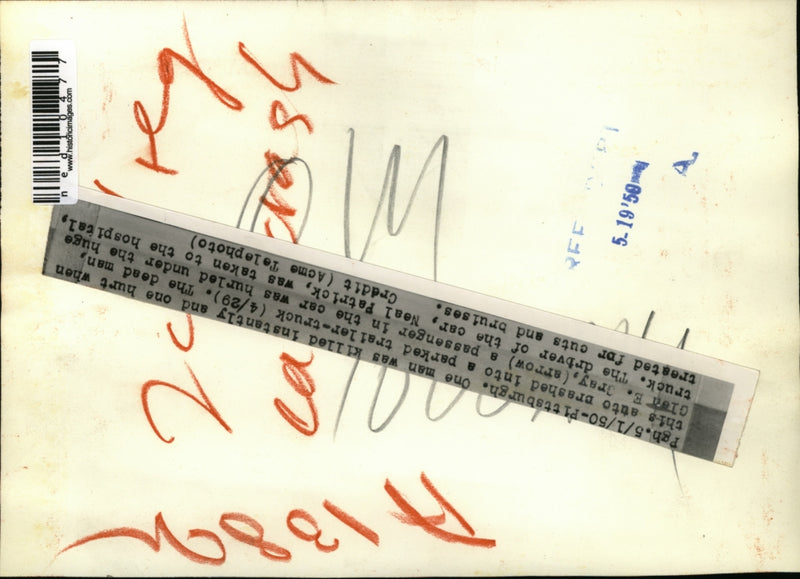 Pgh.5/1/50-Pittsburgh. One man was killed instantly and one hurt when
this auto brashed into a parked trailer-truck (4/29). The dead man,
Glen E. Gray, (arrow) a passenger in the car was hurled under the huge
truck. The drbver of the car, Neal Patrick, was taken to the hospital,
treated fpr cuts and bruises.
Crédit (Acme Telephoto)
www.historicimages.com
ned10477
5.19'50
A
car crash
A1382